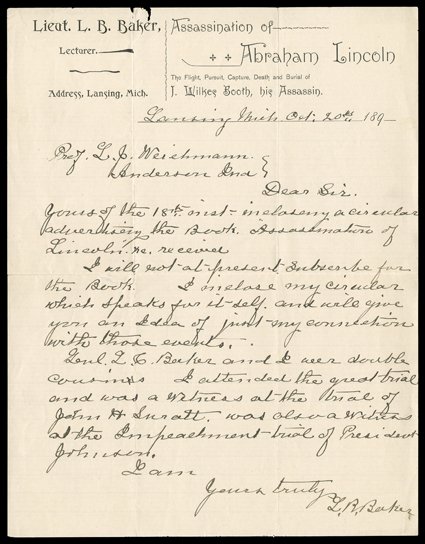 Lieut. L. B. Baker,
Lecturer.
Address, Lansing, Mich.
Assassination of
Abraham Lincoln
The Flight, Pursuit, Capture, Death and Burial of
J. Wilkes Booth, his Assassin.
Lansing Mich. Oct. 20th, 189-
Prof. L. J. Weichmann
Anderson Ind
Dear Sir.
Yours of the 18th inst- inclosing a circular
advertising the Book. Assassination of
Lincoln &c. received
I will not at present Subscribe for
the Book. I inclose my circular
which speaks for it self, and will give
you an Idea of just my connection
with those events.
Genl. L. C. Baker and I wer double
cousins I attended the great trial
and was a witness at the trial of
John H Suratt. was also a witness
at the Impeachment trial of President
Johnson.
I am
Yours truly
L. B. Baker